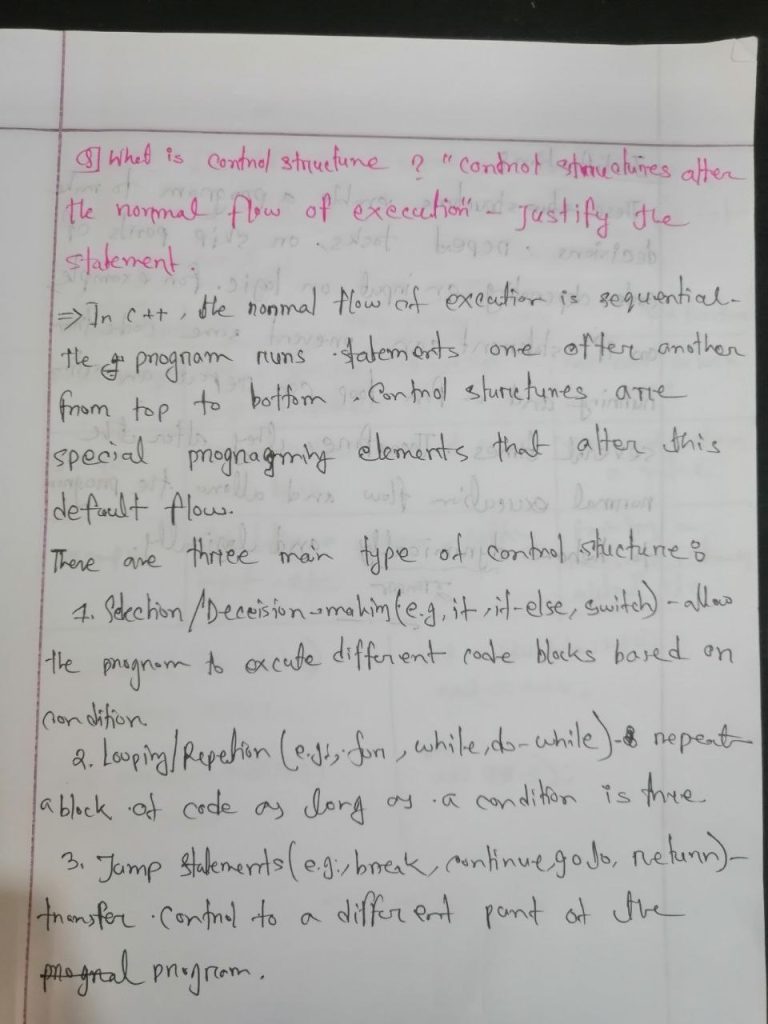 8] What is control structure ? "control structures alter
the normal flow of execution" - Justify the
statement.
⇒ In C++, the normal flow of excution is sequential-
the program runs statements one after another
from top to bottom. Control sturctures are
special prognagming elements that alter this
default flow.
There are three main type of control stucture:
1. Selection/Deceision-makin (e.g, if, if-else, switch) - allow
the program to excute different code blocks based on
condition
2. Looping/Repetion (e.g., for, while, do-while)- repeat
a block of code as long as a condition is true
3. Jump Statements (e.g., break, continue, goto, return)-
transfer control to a different part of the
program.